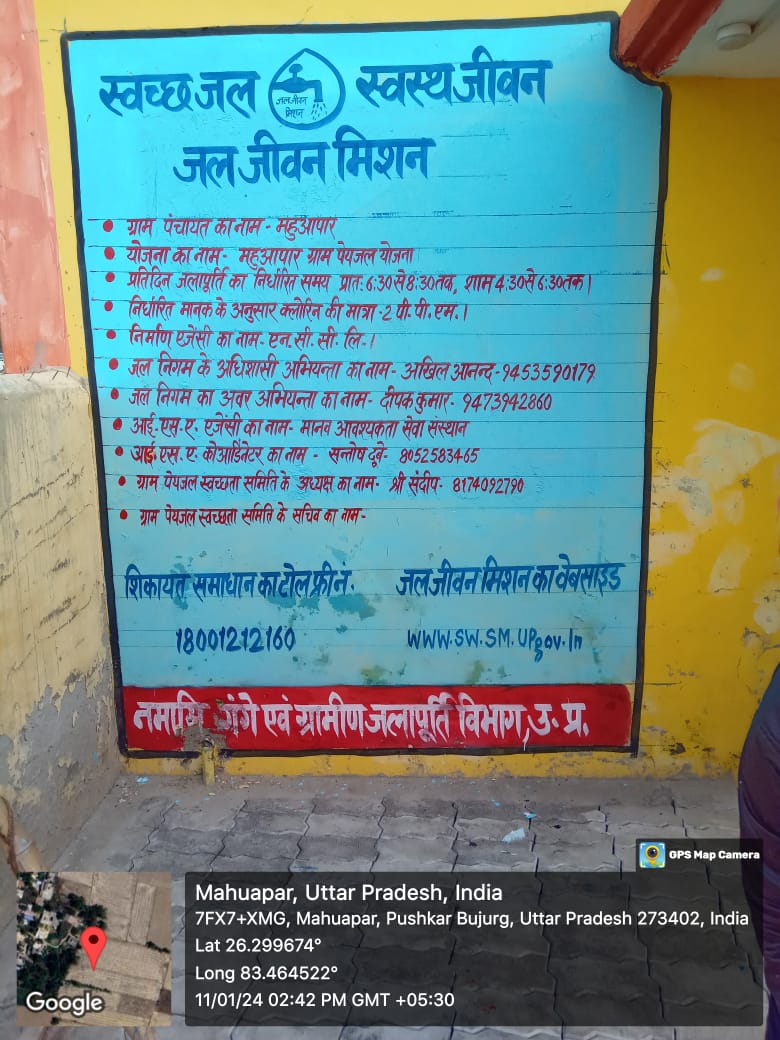 स्वच्छ जल जल जीवन मिशन स्वस्थ जीवन
जल जीवन मिशन
• ग्राम पंचायत का नाम - महुआपार
• योजना का नाम - महुआपार ग्राम पेयजल योजना
• प्रतिदिन जलापूर्ति का निर्धारित समय प्रातः 6:30 से 8:30 तक, शाम 4:30 से 6:30 तक।
• निर्धारित मानक के अनुसार क्लोरिन की मात्रा - 2 पी. पी. एम.।
• निर्माण एजेंसी का नाम - एन. सी. सी. लि.।
• जल निगम के अधिशासी अभियन्ता का नाम - अखिल आनन्द - 9453590179
• जल निगम का अवर अभियन्ता का नाम - दीपक कुमार - 9473942860
• आई. एस. ए. एजेंसी का नाम - मानव आवश्यकता सेवा संस्थान
• आई. एस. ए. कोआर्डिनेटर का नाम - सन्तोष दूबे - 8052583465
• ग्राम पेयजल स्वच्छता समिति के अध्यक्ष का नाम - श्री संदीप - 8174092790
• ग्राम पेयजल स्वच्छता समिति के सचिव का नाम -
शिकायत समाधान का टोल फ्री नं. जल जीवन मिशन का वेबसाइड
18001212160 WWW.SW.SM.UPgov.In
नमामि गंगे एवं ग्रामीण जलापूर्ति विभाग, उ. प्र.
GPS Map Camera
Mahuapar, Uttar Pradesh, India
7FX7+XMG, Mahuapar, Pushkar Bujurg, Uttar Pradesh 273402, India
Lat 26.299674°
Long 83.464522°
11/01/24 02:42 PM GMT +05:30
Google